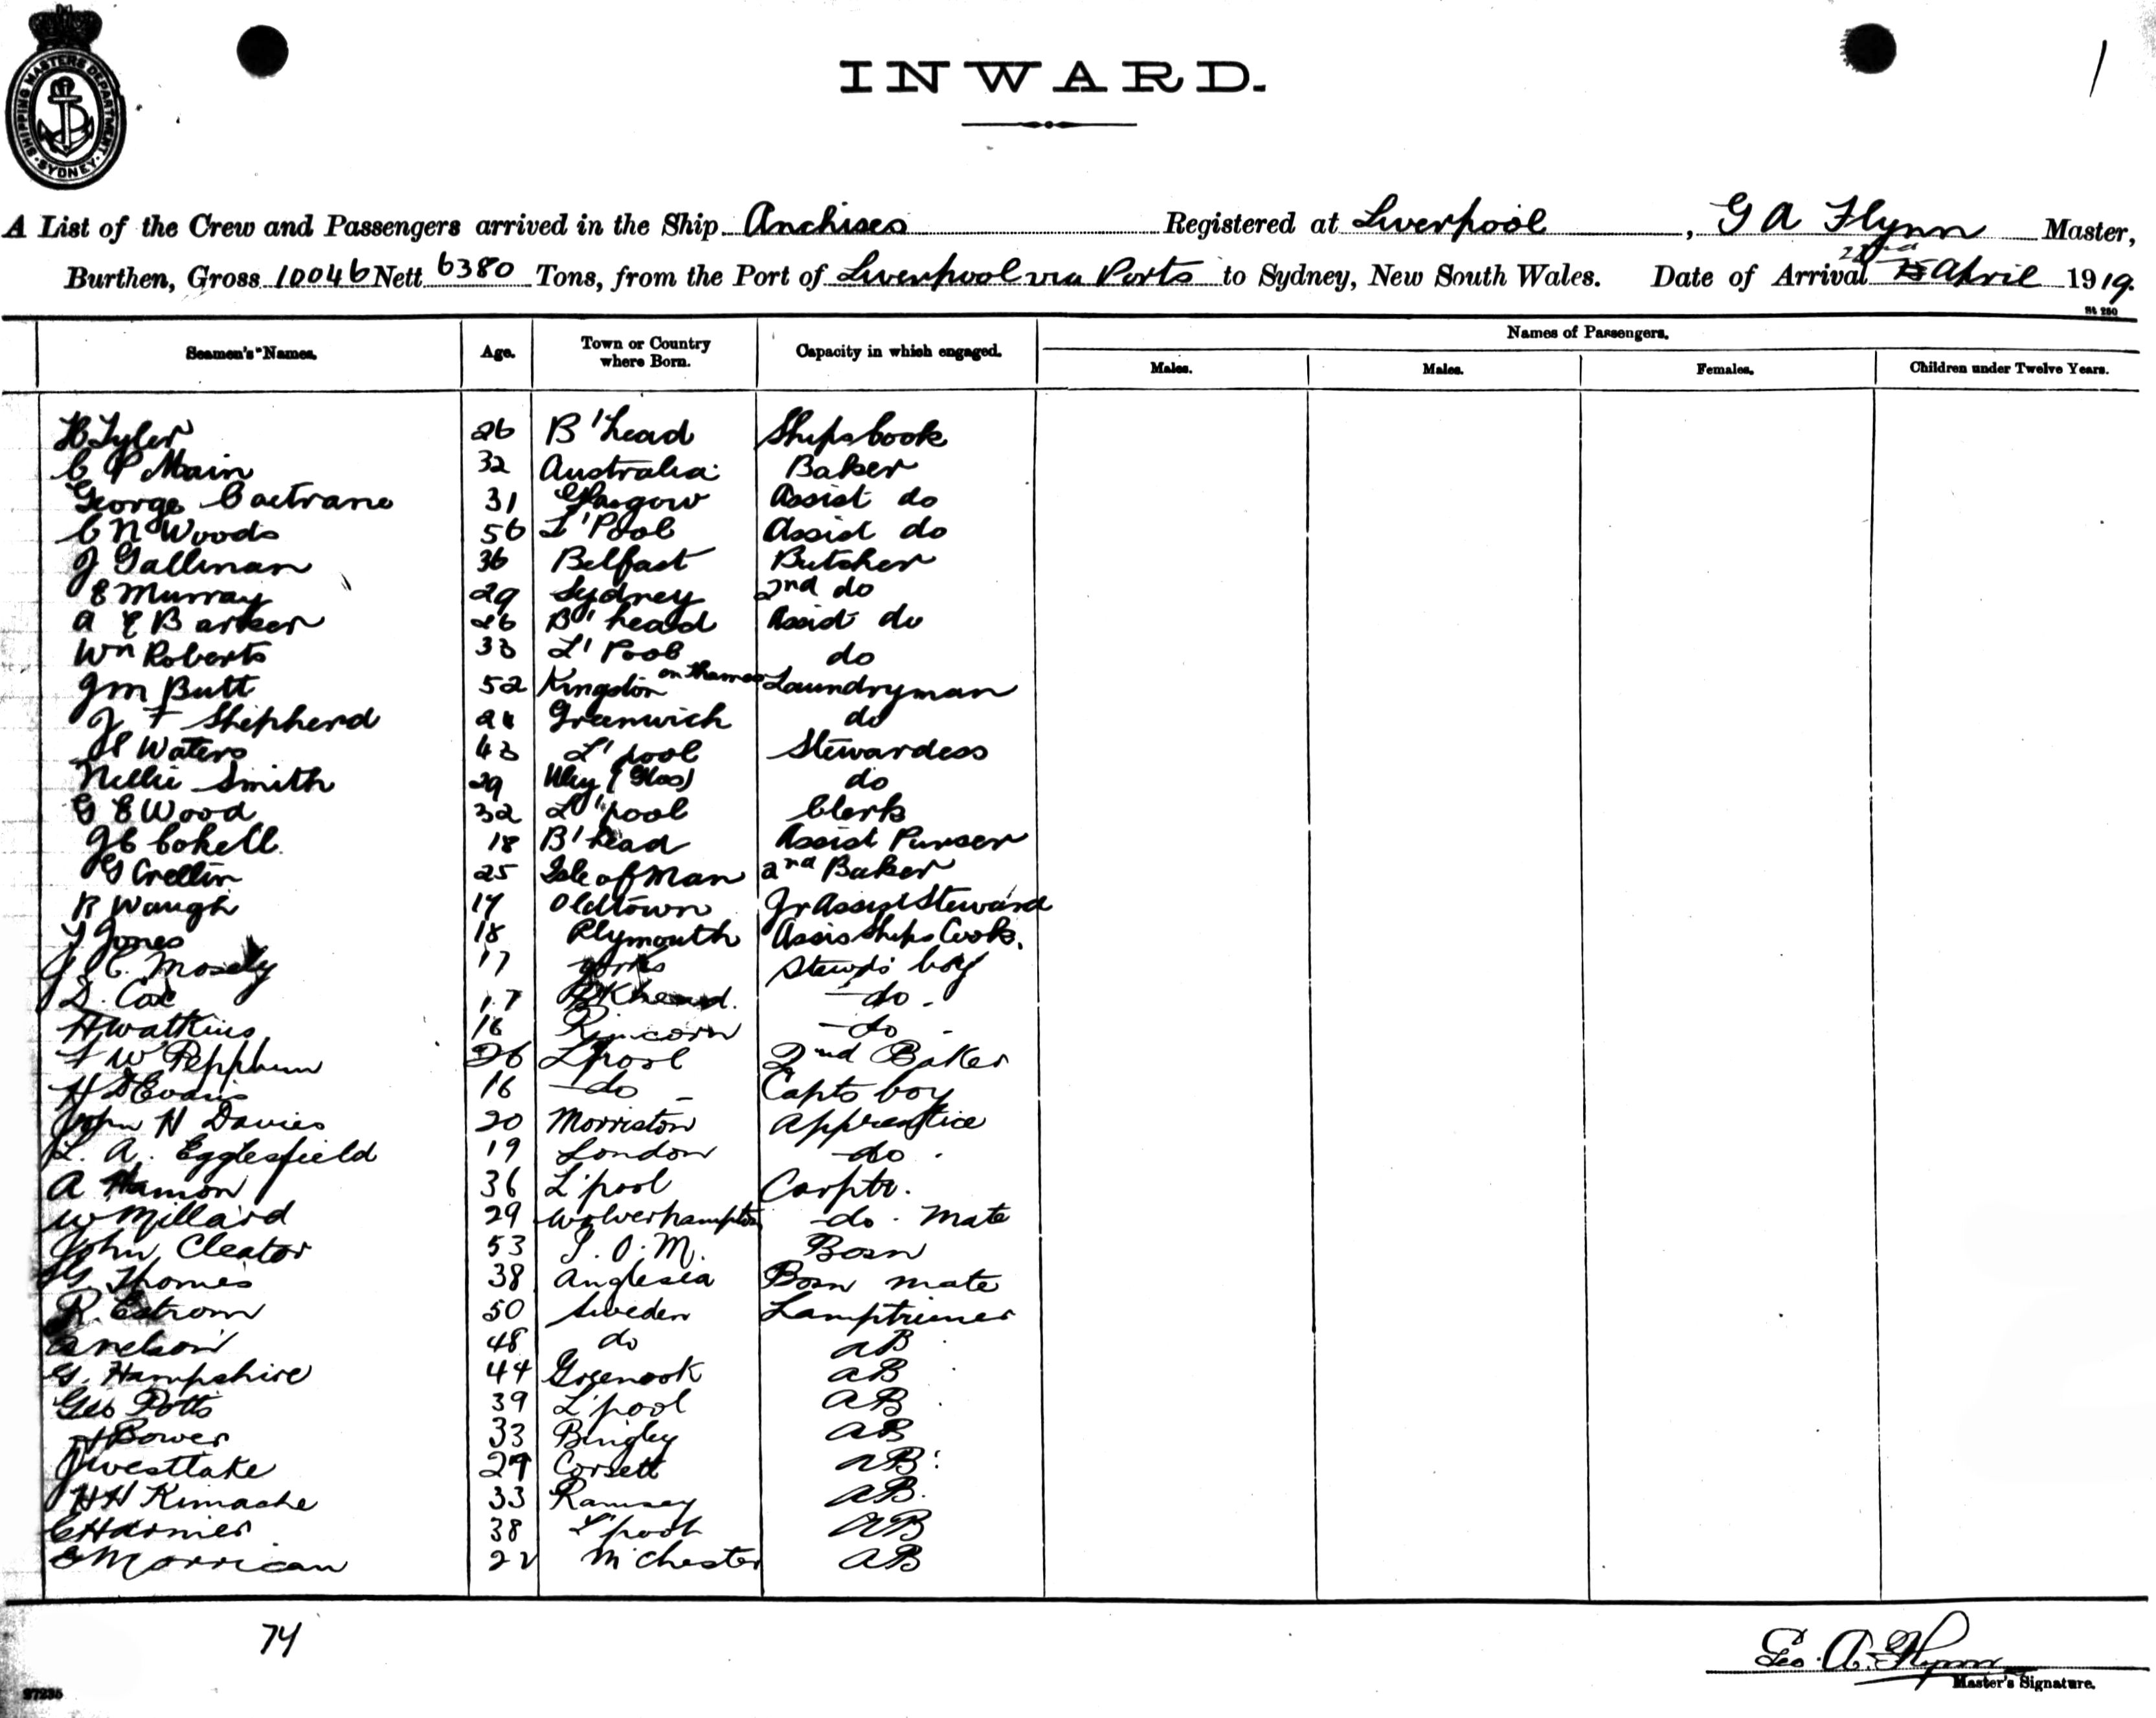 SHIPPING MASTERS DEPARTMENT. SYDNEY.
INWARD.
1
A List of the Crew and Passengers arrived in the Ship Anchises Registered at Liverpool, G A Flynn Master,
Burthen, Gross 10046 Nett 6380 Tons, from the Port of Liverpool via Ports to Sydney, New South Wales. Date of Arrival April 1919.
St 280
Seamen's Names. Age. Town or Country where Born. Capacity in which engaged. Names of Passengers.
Males. Males. Females. Children under Twelve Years.
H Tyler 26 B'head Ships Cook
C P Main 32 Australia Baker
George Coctrane 31 Glasgow Assist do
C N Woods 56 L'Pool Assist do
J Gallinan 36 Belfast Butcher
E Murray 29 Sydney 2nd do
A E Barker 26 B'head Assist do
Wm Roberts 33 L'Pool do
J M Butt 52 Kingston on Thames Laundryman
J F Shepherd Greenwich do
Waters 43 L'pool Stewardess
Nellie Smith 29 Uley (Glos) do
G E Wood 32 L'pool Clerk
J C Cokell. 18 B'head Assist Purser
G Crellin 25 Isle of Man 2nd Baker
R Waugh 17 Oldtown Jr Assist Steward
Jones 18 Plymouth Assis Ships Cook.
J C. Mosely 17 Stewds boy
D. Cox 17 B'Khead. -do-
H Watkins 16 Runcorn -do-
F W Pepphum 26 L'pool 2nd Baker
H D Evans 16 -do- Capts boy
John H Davies 20 Morriston Apprentice
L. A. Egglesfield 19 London -do-
A Hamon 36 L'pool Carptr.
W Millard 29 Wolverhampton -do- Mate
John Cleator 53 I.O.M. Bosn
G Thomas 38 Anglesea Bosn mate
R. Estrom 50 Sweden Lamptrimer
Nelson 48 do AB
G. Hampshire 44 Greenock AB
Geo Potts 39 L'pool AB
H Bower 33 Bingley AB
J Westlake 29 Corsett AB
H H Kimache 33 Ramsey AB.
C Harmer 38 L'pool AB
Morrican 22 M'chester AB
74
Geo. A. Flynn
Master's Signature.
37235